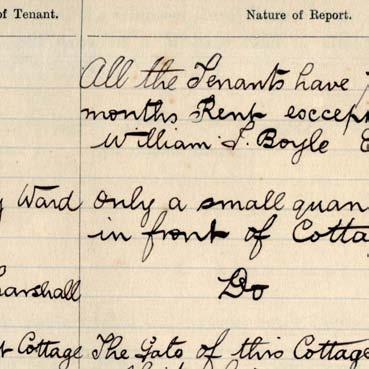 of Tenant. Nature of Report.
All the Tenants have
months Rent except
William J. Boyle
Ward Only a small quan
in front of Cotta
arshall Do
Cottage The Gate of this Cottage